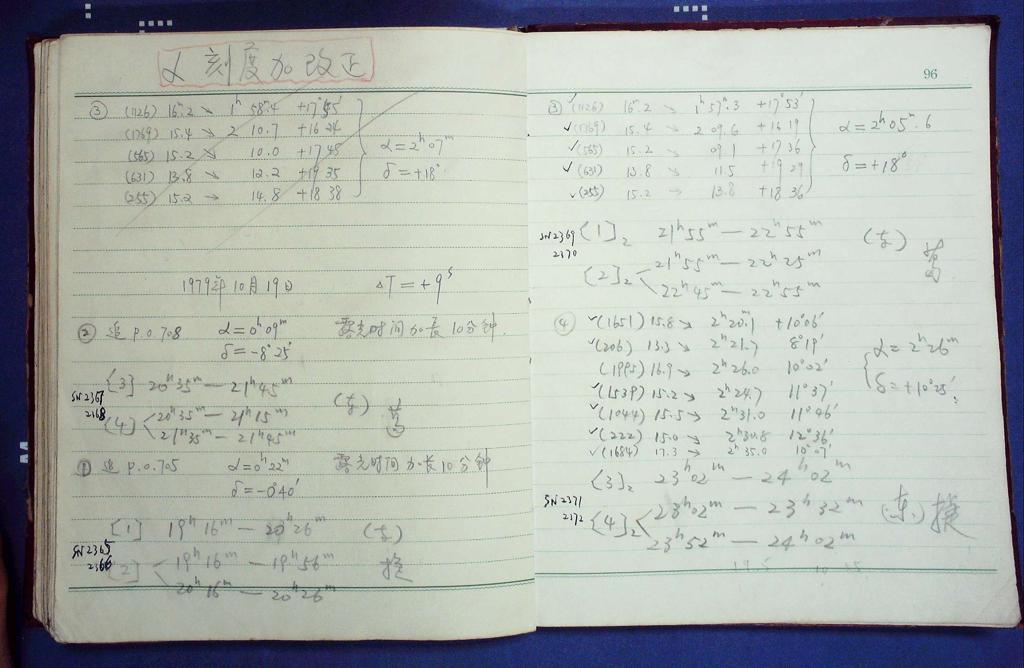 α 刻度加改正
③ (1126) 16.2 → 1ʰ 58ᵐ.4 +17°45′
(1769) 15.4 → 2 10.7 +16 24
(565) 15.2 → 10.0 +17 45
(631) 13.8 → 12.2 +19 35
(255) 15.2 → 14.8 +18 38
α=2ʰ07ᵐ
δ=+18°
1979年10月19日 ΔT=+9ˢ
② 追 P.O.708 α=0ʰ09ᵐ 露光时间加长10分钟.
δ=-8°25′
SN2367
2368
[3] 20ʰ35ᵐ—21ʰ45ᵐ
[4] 20ʰ35ᵐ—21ʰ15ᵐ
21ʰ35ᵐ—21ʰ45ᵐ
① 追 P.O.705 α=0ʰ22ᵐ 露光时间加长10分钟
δ=-0°40′
SN2365
2366
[1] 19ʰ16ᵐ—20ʰ26ᵐ
[2] 19ʰ16ᵐ—19ʰ56ᵐ
20ʰ16ᵐ—20ʰ26ᵐ
96
③ ✓(1126) 16ᵐ.2 → 1ʰ57ᵐ.3 +17°53′
✓(1769) 15.4 → 2 09.6 +16 19
✓(565) 15.2 → 09.1 +17 36
✓(631) 13.8 → 11.5 +19 29
✓(255) 15.2 → 13.8 +18 36
α=2ʰ05ᵐ.6
δ=+18°
SN2369
2370
[1]₂ 21ʰ55ᵐ—22ʰ55ᵐ
[2]₂ 21ʰ55ᵐ—22ʰ25ᵐ
22ʰ45ᵐ—22ʰ55ᵐ
④ ✓(1651) 15.8 → 2ʰ20ᵐ.1 +10°06′
✓(206) 13.3 → 2ʰ21.7 8°19′
(1995) 16.9 → 2ʰ26.0 10°02′
✓(1539) 15.2 → 2ʰ24.7 11°37′
✓(1044) 15.5 → 2ʰ31.0 11°46′
✓(222) 15.0 → 2ʰ30.8 12°36′
✓(1684) 17.3 → 2ʰ35.0 10°07′
α=2ʰ26ᵐ
δ=+10°25′
SN2371
2372
[3]₂ 23ʰ02ᵐ—24ʰ02ᵐ
[4]₂ 23ʰ02ᵐ—23ʰ32ᵐ (东)
23ʰ52ᵐ—24ʰ02ᵐ